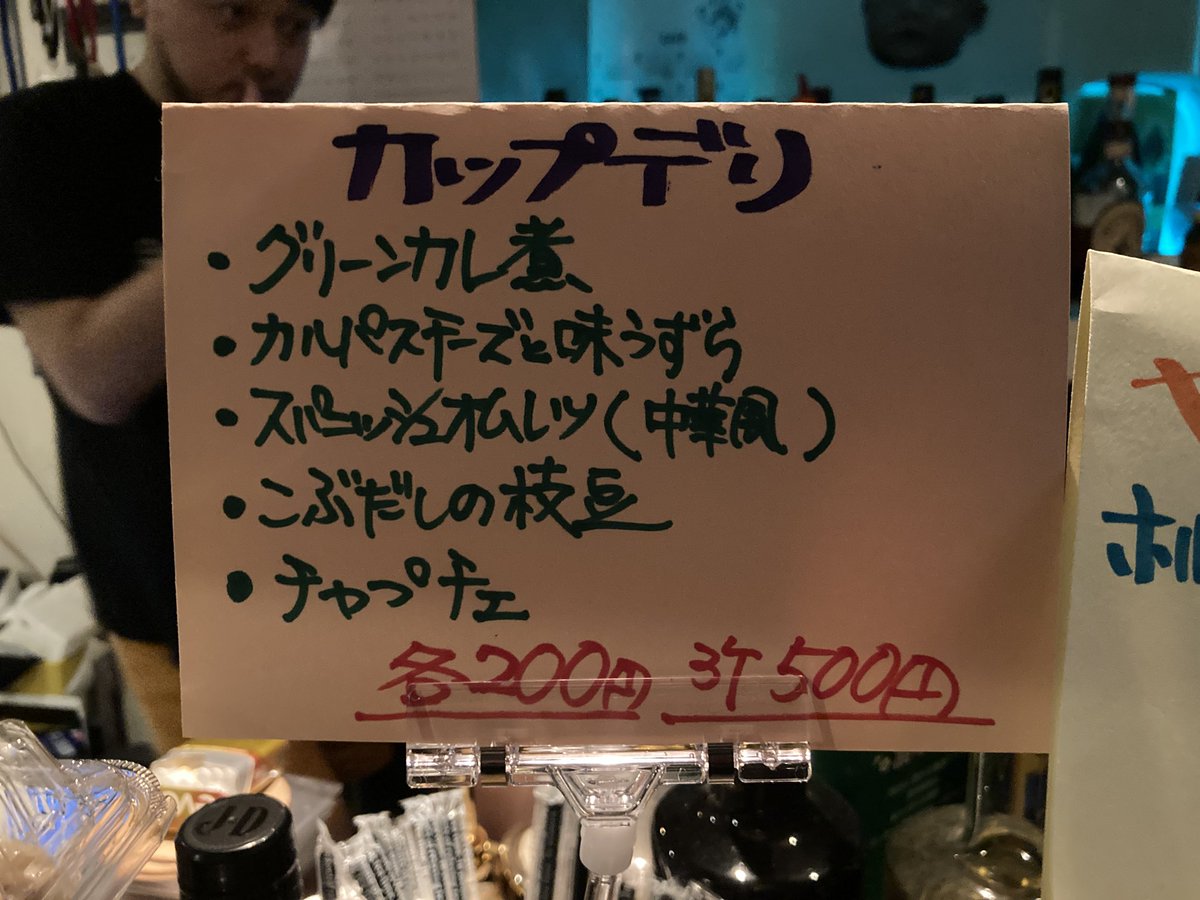 カップデリ
・グリーンカレー煮、
・カルパスチーズと味うずら
・スパニッシュオムレツ(中華風)
・こぶだしの枝豆
・チャプチェ
各200円 3ケ500円
ホル
J・D